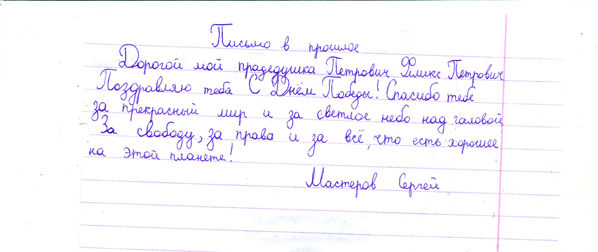 Письмо в прошлое
Дорогой мой прадедушка Петрович Феликс Петрович
Поздравляю тебя С Днём Победы! Спасибо тебе
за прекрасный мир и за светлое небо над галовой
За свободу, за права и за всё, что есть хорошее
на этой планете!
Мастеров Сергей